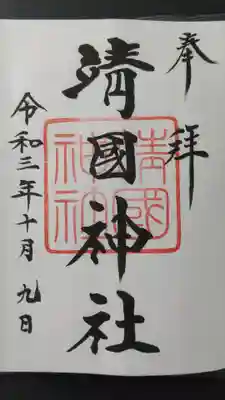 奉拝
靖國神社
令和三年十月九日
靖國神社